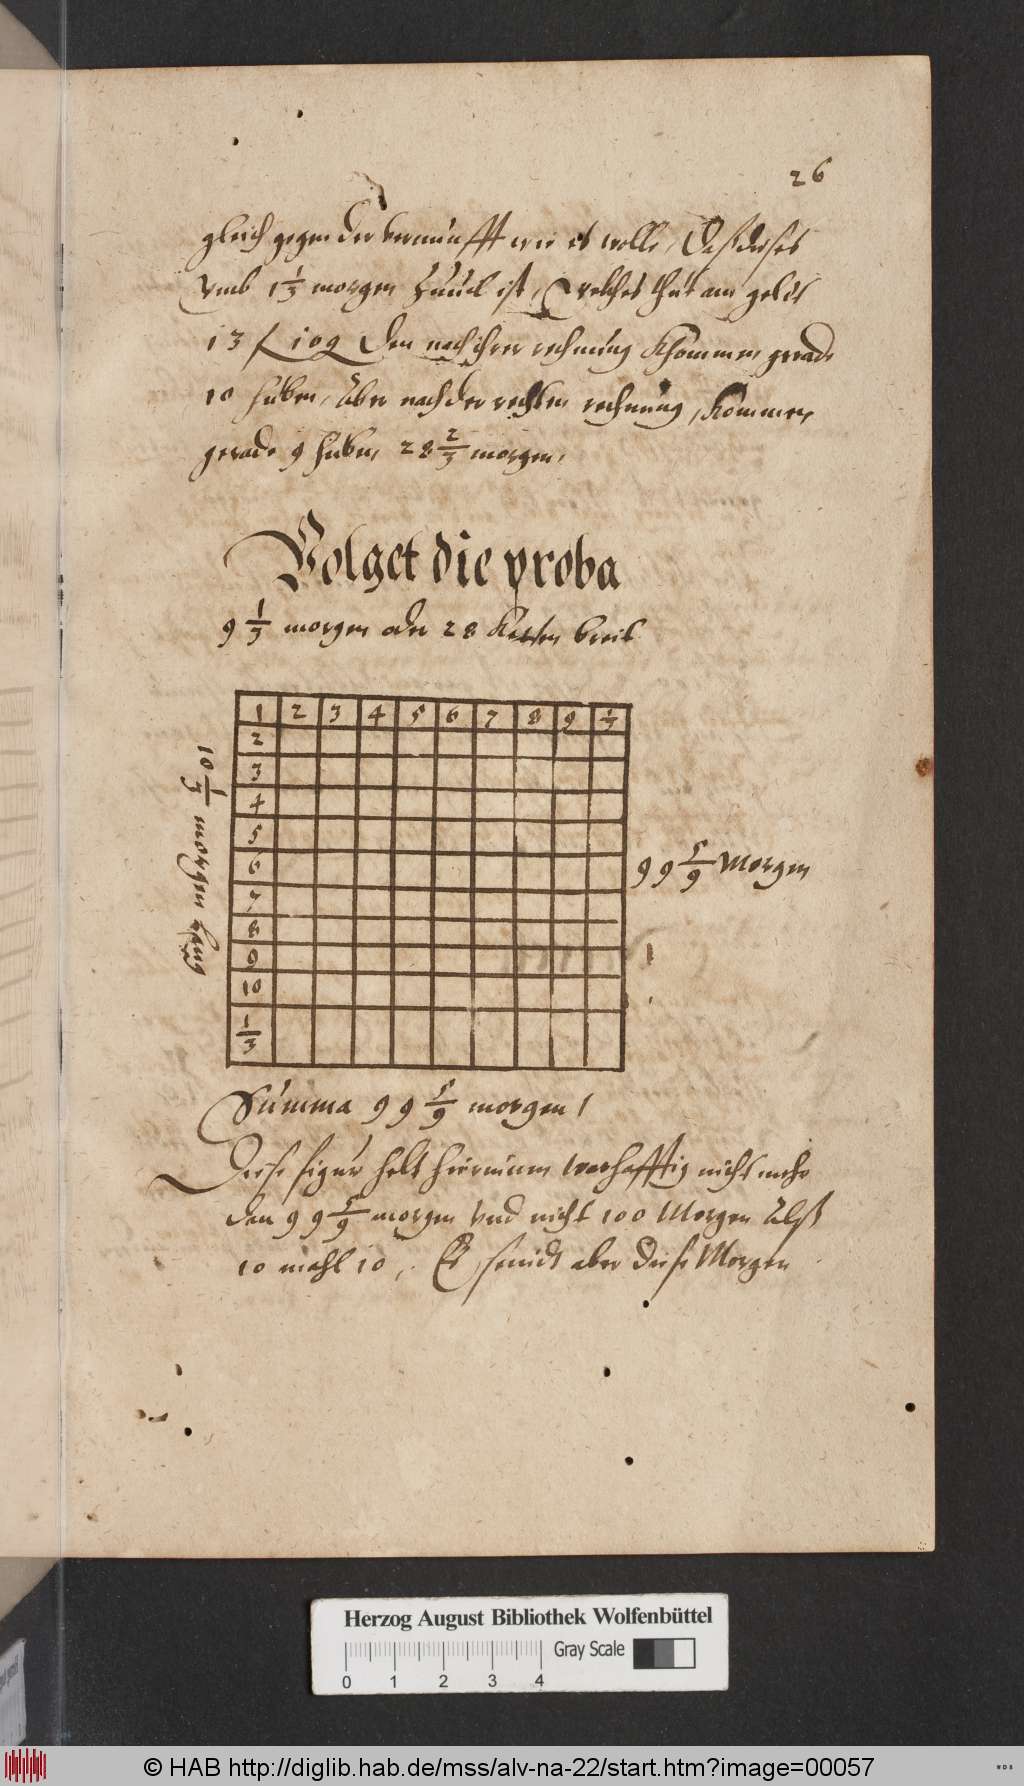 26
gleich gegen der vernunfft wie es wolle, Das dieses
Vmb 1 1/3 morgen Zuuiel ist, Welches thut am gelde
13 f 10 g Den nach ihrer rechnung Khommen gerade
10 huben, Aber nach der rechten rechnung, Kommen
gerade 9 huben 28 2/3 morgen,
Volget die proba
9 1/3 morgen oder 28 Ketten breit
1 2 3 4 5 6 7 8 9 1/3
2
3
4
5
6
7
8
9
10
1/3
10 2/3 morgen lang
99 5/9 Morgen
Summa 99 5/9 morgen /
Diese figur helt hierinnen warhafftig nicht mehr
den 99 5/9 morgen Vnd nicht 100 Morgen Alß
10 mahl 10, Es seindt aber diese Morgen
Herzog August Bibliothek Wolfenbüttel
Gray Scale
0 1 2 3 4
© HAB http://diglib.hab.de/mss/alv-na-22/start.htm?image=00057